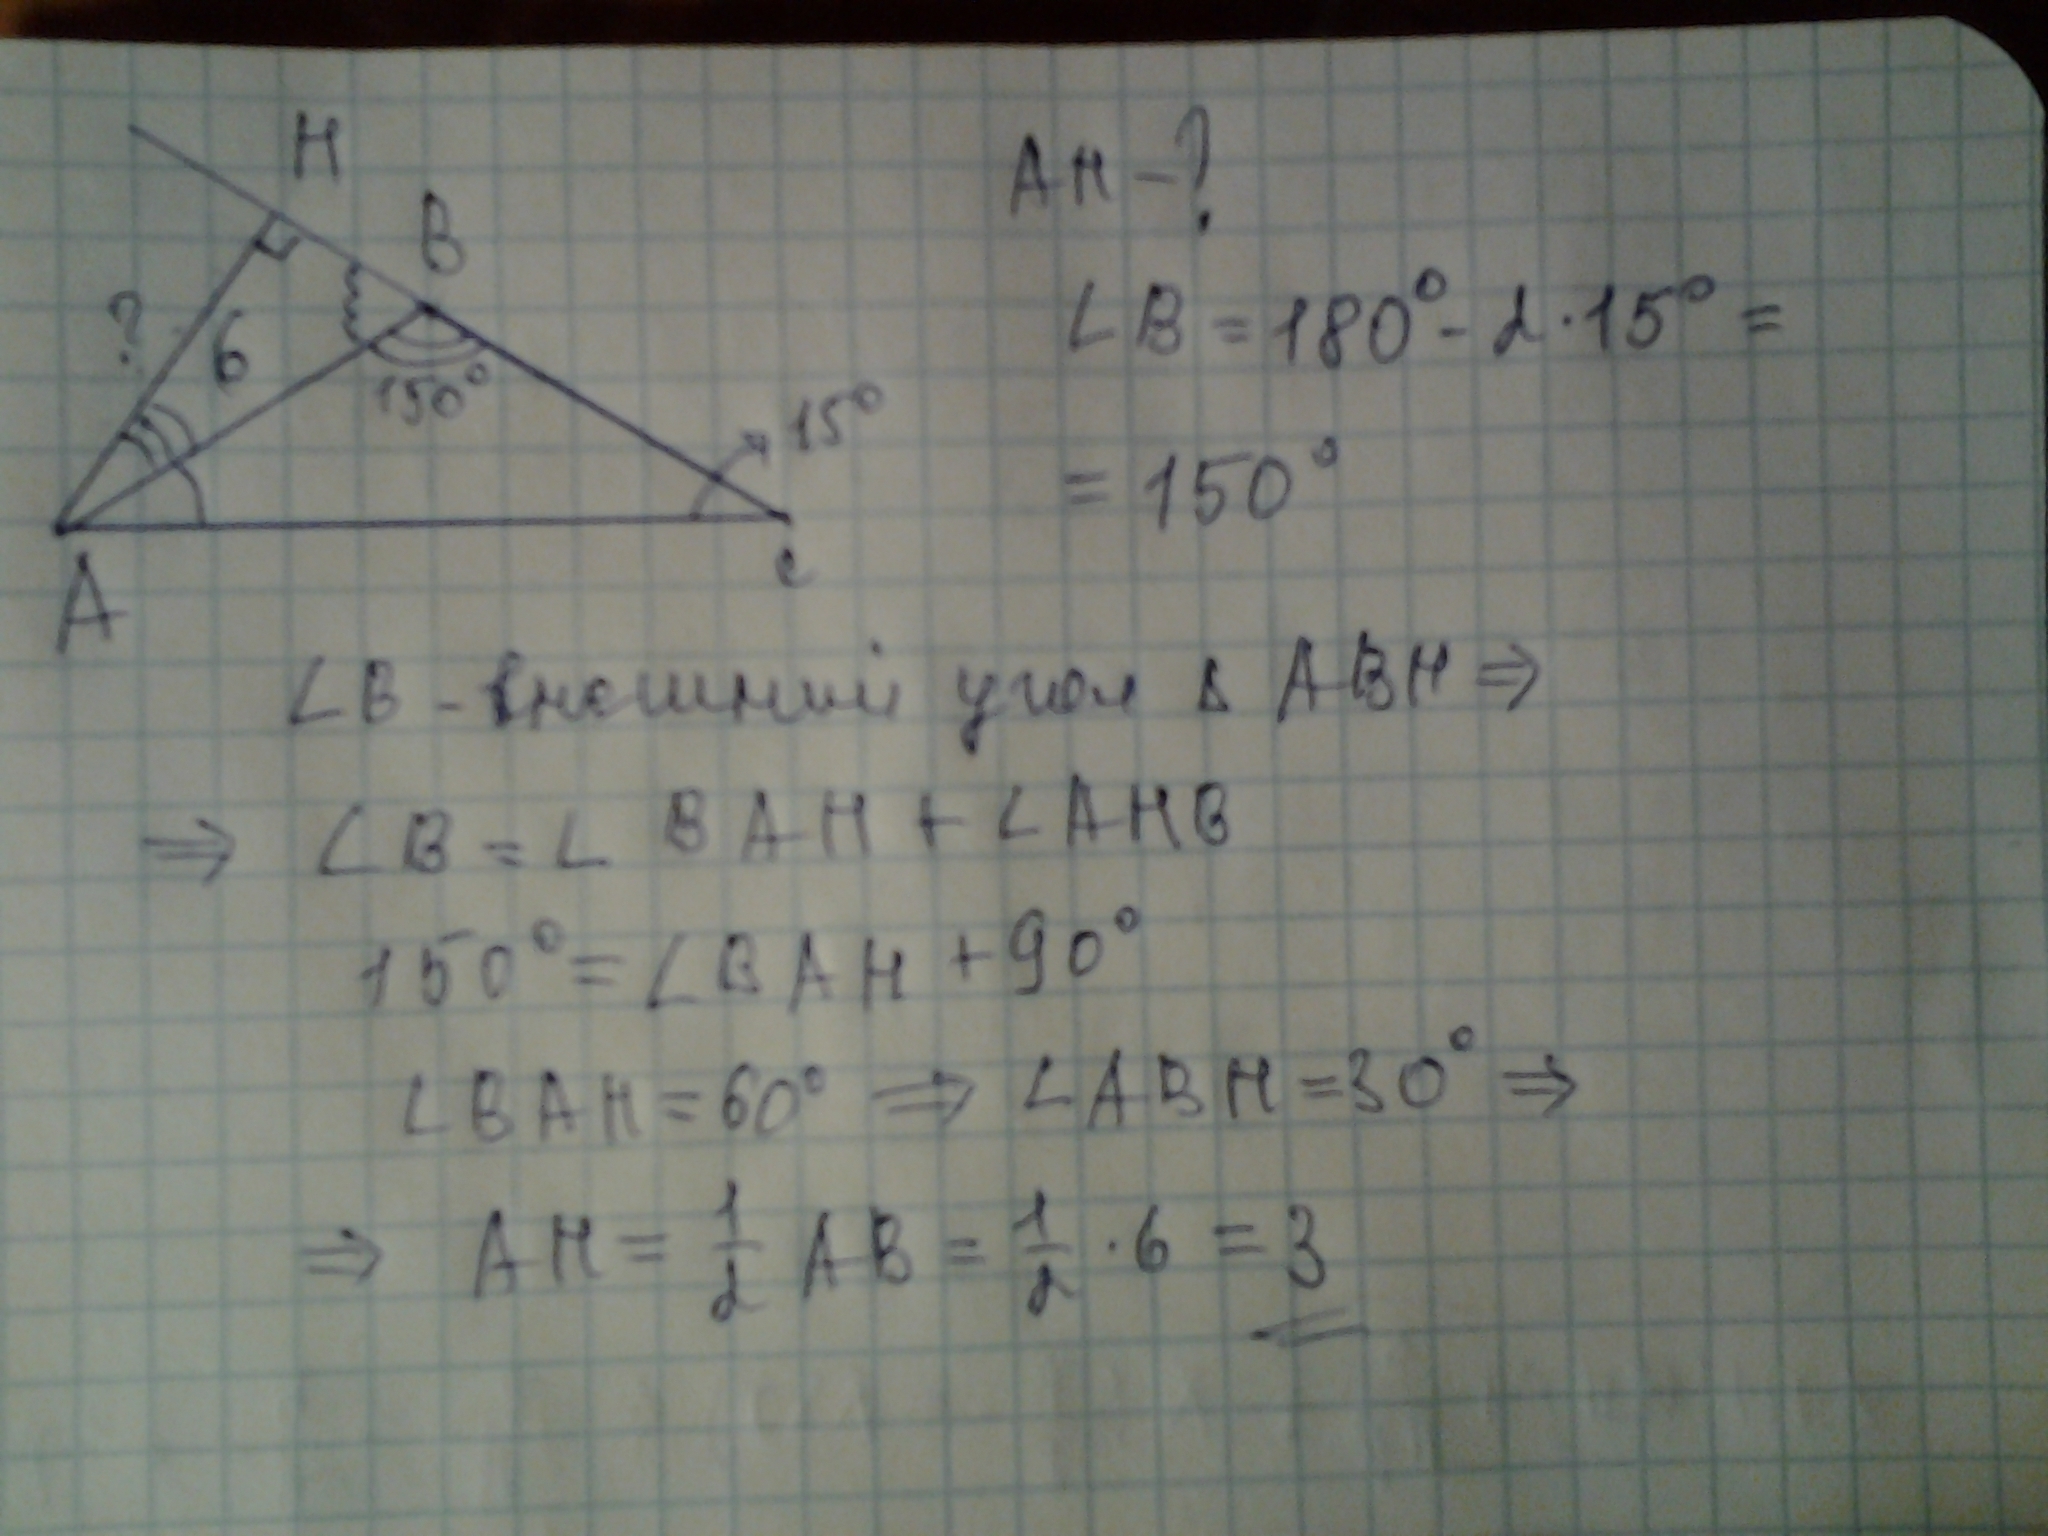 H
B
?
6
150°
15°
A
c
AH - ?
∠B = 180° - 2·15° =
= 150°
∠B - внешний угол Δ ABH ⇒
⇒ ∠B = ∠ BAH + ∠AHB
150° = ∠BAH + 90°
∠BAH = 60° ⇒ ∠ABH = 30° ⇒
⇒ AH = 1/2 AB = 1/2 · 6 = 3